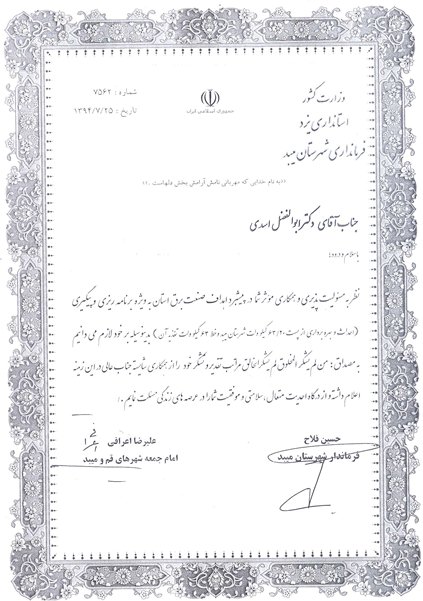 شماره : ۷۵۶۲
تاریخ : ۱۳۹۴/۷/۲۵
جمهوری اسلامی ایران
وزارت کشور
استانداری یزد
فرمانداری شهرستان میبد
«به نام خدایی که مهربانی نامش آرامش بخش دلهاست ..»
جناب آقای دکتر ابوالفضل اسدی
با سلام و درود؛
نظر به مسئولیت پذیری و همکاری موثر شما در پیشبرد اهداف صنعت برق استان به ویژه برنامه ریزی و پیگیری
(احداث و بهره برداری از پست ۶۳/۲۰ کیلوولت شهرستان میبد و خط ۶۳ کیلوولت تغذیه آن) بدینوسیله بر خود لازم می دانیم
به مصداق: من لم یشکر المخلوق لم یشکر الخالق مراتب تقدیر و تشکر خود را از همکاری شایسته جناب عالی در این زمینه
اعلام داشته و از درگاه احدیت متعال، سلامتی و موفقیت شما را در عرصه های زندگی مسئلت نمایم.
حسین فلاح
فرماندار شهرستان میبد
علیرضا اعرافی
امام جمعه شهرهای قم و میبد